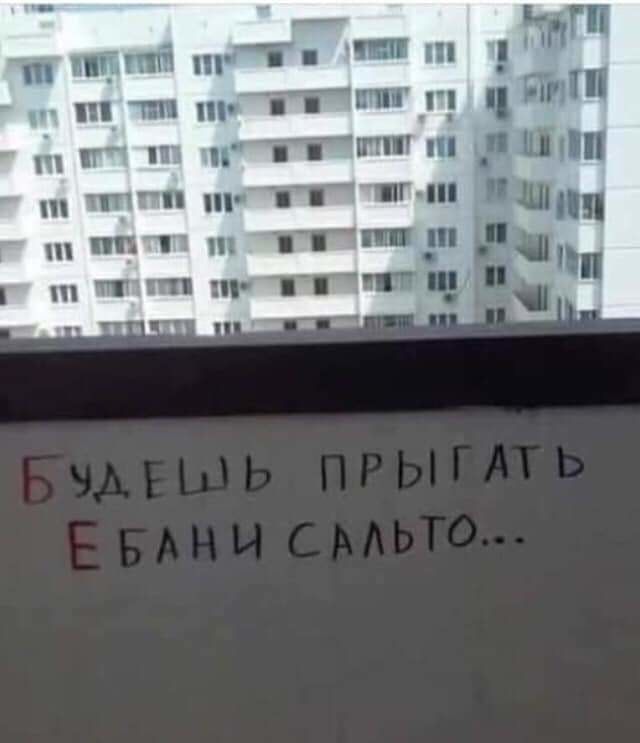 БУДЕШЬ ПРЫГАТЬ
ЕБАНИ САЛЬТО...